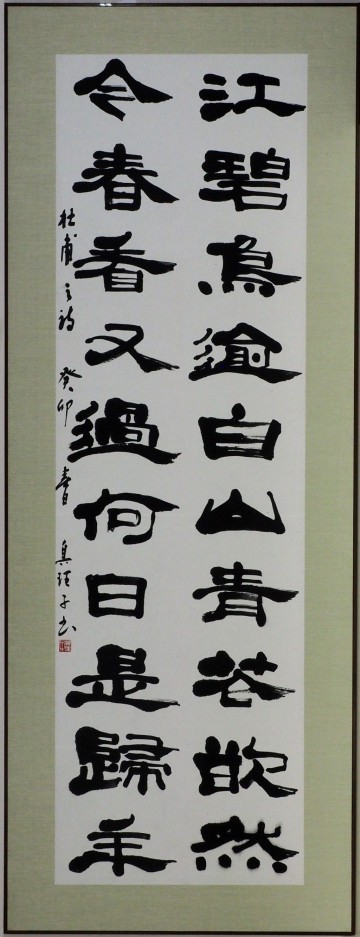 江碧鳥逾白山青花欲然
今春看又過何日是歸年
杜甫之詩 癸卯 春 真理子书